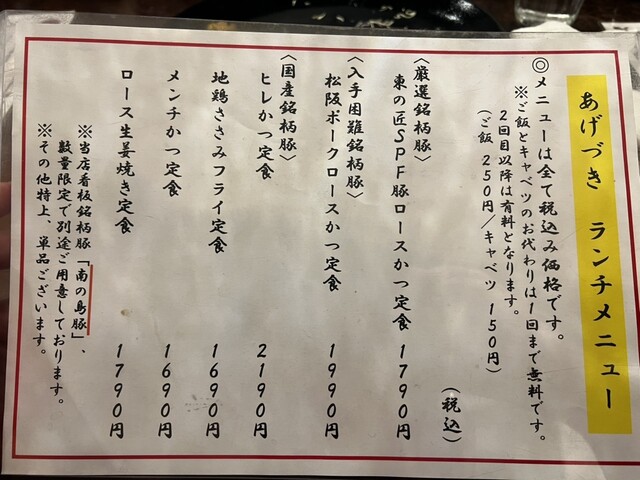 あげづき ランチメニュー
◎メニューは全て税込み価格です。
※ご飯とキャベツのお代わりは1回まで無料です。
2回目以降は有料となります。
(ご飯 250円/キャベツ 150円)
(税込)
〈厳選銘柄豚〉
東の匠SPF豚ロースかつ定食 1790円
〈入手困難銘柄豚〉
松阪ポークロースかつ定食 1990円
〈国産銘柄豚〉
ヒレかつ定食 2190円
地鶏ささみフライ定食 1690円
メンチかつ定食 1690円
ロース生姜焼き定食 1790円
※当店看板銘柄豚「南の島豚」、
数量限定で別途ご用意しております。
※その他特上、単品ございます。